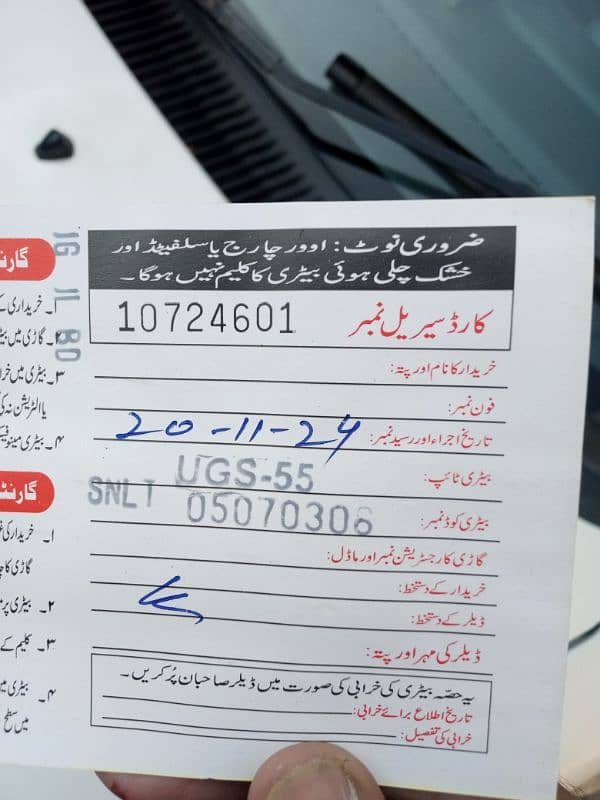 ضروری نوٹ: اوور چارج یا سلفیٹڈ اور
خشک چلی ہوئی بیٹری کا کلیم نہیں ہوگا۔
کارڈ سیریل نمبر 10724601
خریدار کا نام اور پتہ:
فون نمبر:
تاریخ اجراء اور رسید نمبر: 20-11-24
بیٹری ٹائپ: UGS-55
بیٹری کوڈ نمبر: SNLT 05070306
گاڑی کا رجسٹریشن نمبر اور ماڈل:
خریدار کے دستخط:
ڈیلر کے دستخط:
ڈیلر کی مہر اور پتہ:
یہ حصّہ بیٹری کی خرابی کی صورت میں ڈیلر صاحبان پُر کریں۔
تاریخ اطلاع برائے خرابی:
خرابی کی تفصیل:
۱۔ خریداری کے
۲۔ گاڑی میں
۳۔ بیٹری میں
یا الٹریشن نہ کی
۴۔ بیٹری
۱۔ خریدار کی
گاڑی کا
۲۔ بیٹری پر
۳۔ کلیم کے
۴۔ بیٹری
میں سطح